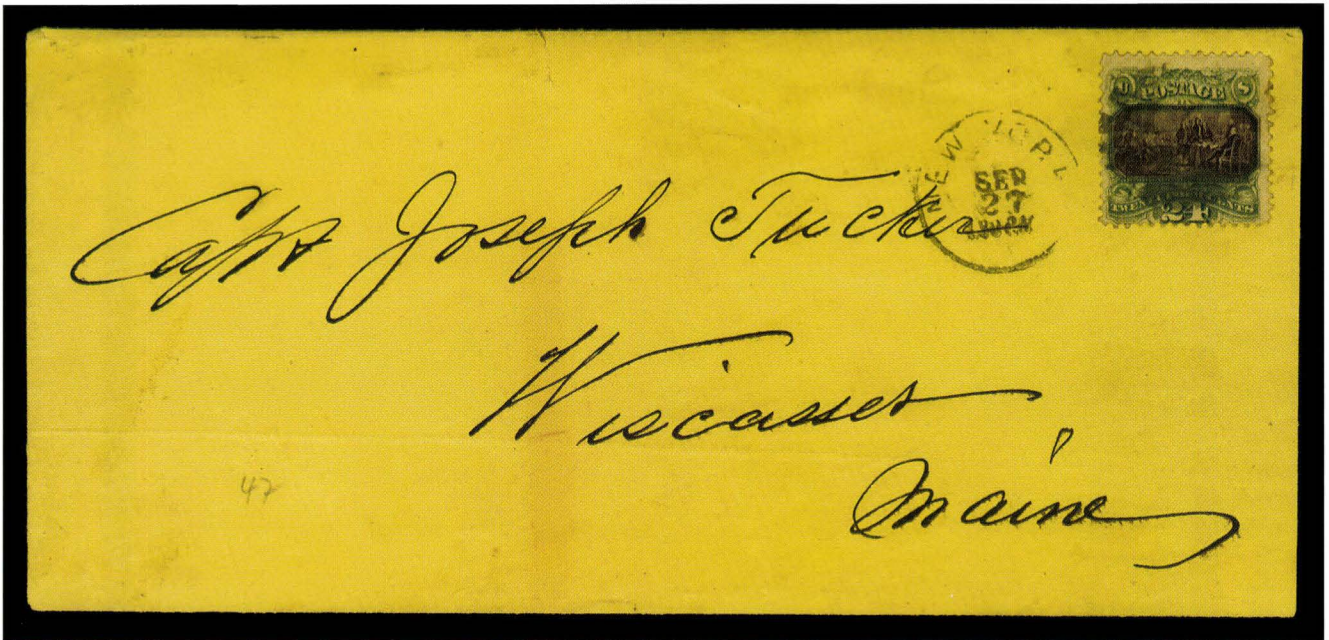 U POSTAGE S
NEW YORK
SEP
27
Capt Joseph Tucker
24
Wiscasset
Maine
47